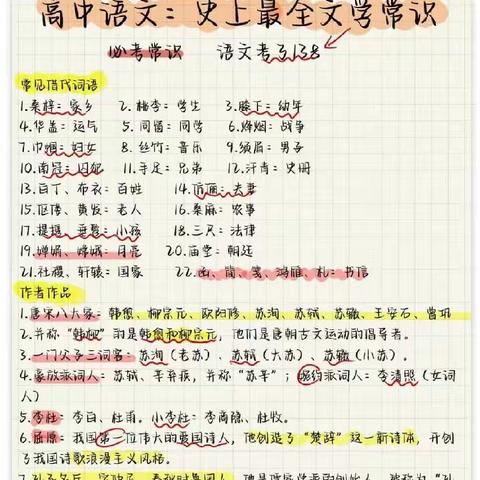 高中语文：史上最全文学常识
必考常识 语文考了138
常见借代词语
1.桑梓：家乡 2.桃李：学生 3.膝下：幼年
4.华盖：运气 5.同窗：同学 6.烽烟：战争
7.巾帼：妇女 8.丝竹：音乐 9.须眉：男子
10.南冠：囚犯 11.手足：兄弟 12.汗青：史册
13.白丁、布衣：百姓 14.伉俪：夫妻
15.伛偻、黄发：老人 16.桑麻：农事
17.提携、垂髫：小孩 18.三尺：法律
19.婵娟、嫦娥：月亮 20.庙堂：朝廷
21.社稷、轩辕：国家 22.函、简、笺、鸿雁、札：书信
作者作品
1.唐宋八大家：韩愈、柳宗元、欧阳修、苏洵、苏轼、苏辙、王安石、曾巩
2.并称“韩柳”的是韩愈和柳宗元，他们是唐朝古文运动的倡导者。
3.一门父子三词客：苏洵（老苏）、苏轼（大苏）、苏辙（小苏）。
4.豪放派词人：苏轼、辛弃疾，并称“苏辛”；婉约派词人：李清照（女词
人）
5.李杜：李白、杜甫。小李杜：李商隐、杜牧。
6.屈原：我国第一位伟大的爱国诗人，他创造了“楚辞”这一新诗体，开创
了我国诗歌浪漫主义风格。